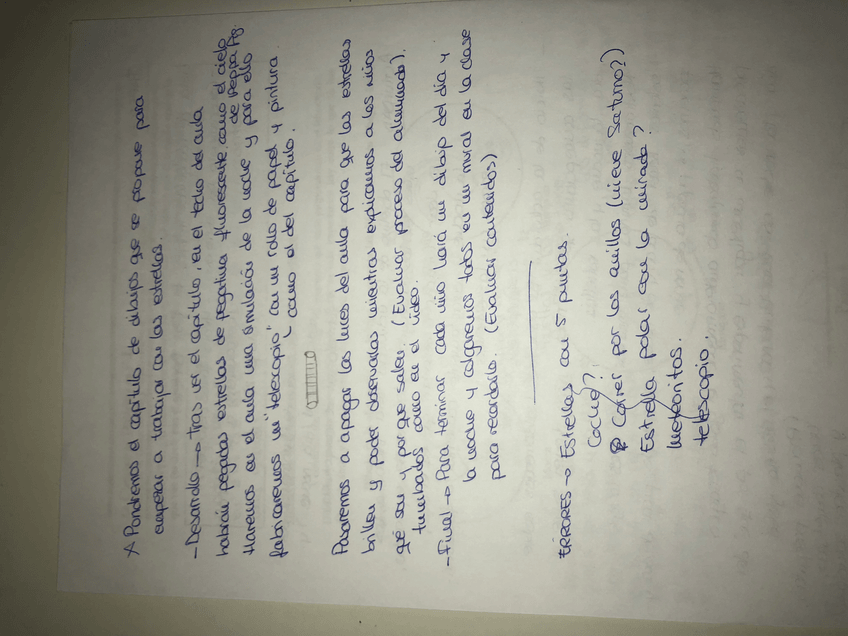 * Pondremos el capítulo de dibujos que se propone para
empezar a trabajar con las estrellas.
- Desarrollo → tras ver el capítulo, en el techo del aula
habrán pegadas estrellas de pegatina fluorescente como el cielo
de Peppa Pig.
Haremos en el aula una simulación de la noche y para ello
fabricaremos un "telescopio" con un rollo de papel y pintura
como el del capítulo.
Pasaremos a apagar las luces del aula para que las estrellas
brillen y poder observarlas mientras explicamos a los niños
qué son y por que salen. (Evaluar proceso del alumnado).
tumbados como en el vídeo.
- Final → Para terminar cada niño hará un dibujo del día y
la noche y colgaremos todos en un mural en la clase
para recordarlo. (Evaluar contenidos)
ERRORES → Estrellas con 5 puntas.
Coche?
Correr por los anillos (nieve Saturno?)
Estrella polar con la mirada?
Meteoritos.
telescopio.